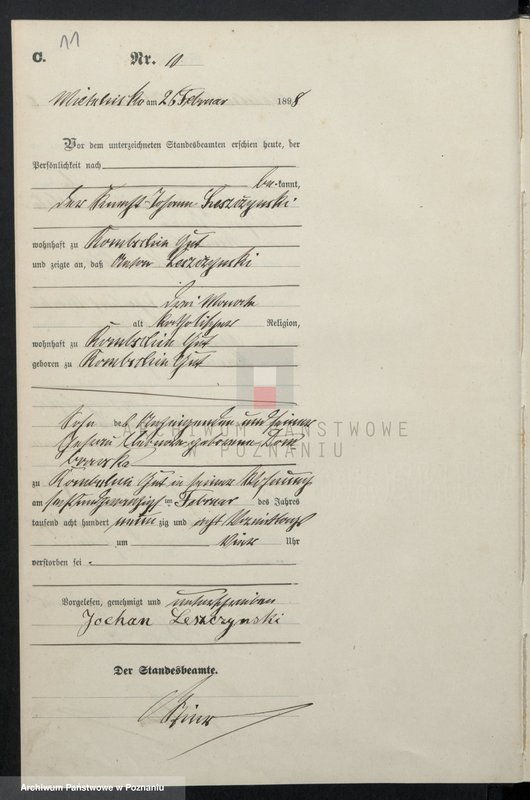 11
C.
Nr. 10
am 26 Februar 1898
Vor dem unterzeichneten Standesbeamten erschien heute, der
Persönlichkeit nach
be-kannt,
der Knecht Johann Leszczynski
wohnhaft zu Gut
und zeigte an, daß Anton Leszczynski
drei Monate
alt katholischer Religion,
wohnhaft zu Gut
geboren zu Gut
Sohn des Anzeigenden und seiner
Ehefrau geborenen Dom
browska
zu Gut in seiner Wohnung
am sechsundzwanzigsten Februar des Jahres
tausend acht hundert neunzig und acht Vormittags
um vier Uhr
verstorben sei.
Vorgelesen, genehmigt und unterschrieben
Jochan Leszczynski
Der Standesbeamte.
ARCHIWUM PAŃSTWOWE
W POZNANIU
Archiwum Państwowe w Poznaniu